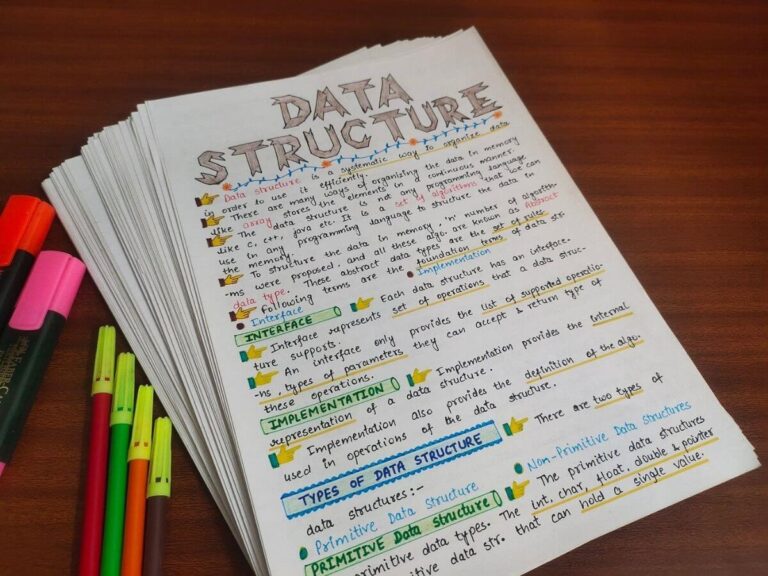 DATA
STRUCTURE
Data structure is a systematic way to organize data
in order to use it efficiently.
There are many ways of organizing the data in memory
like array stores the elements in a continuous manner.
The data structure is not any programming language
like C, C++, java etc. It is a set of algorithms that we can
use in any programming language to structure the data in
the memory.
To structure the data in memory, 'n' number of algorith-
-ms were proposed, and all these algo. are known as Abstract
data type. These abstract data types are the set of rules.
Following terms are the foundation terms of data str.
Interface Implementation
INTERFACE Each data structure has an interface.
Interface represents set of operations that a data struc-
ture supports.
An interface only provides the list of supported operatio-
-ns, types of parameters they can accept & return type of
these operations.
IMPLEMENTATION Implementation provides the internal
representation of a data structure.
Implementation also provides the definition of the algo-
used in operations of the data structure.
TYPES OF DATA STRUCTURE There are two types of
data structures:-
Primitive Data Structure Non-Primitive Data structures
PRIMITIVE Data structure The primitive data structures
primitive data types. The int, char, float, double & pointer
data str. that can hold a single value.